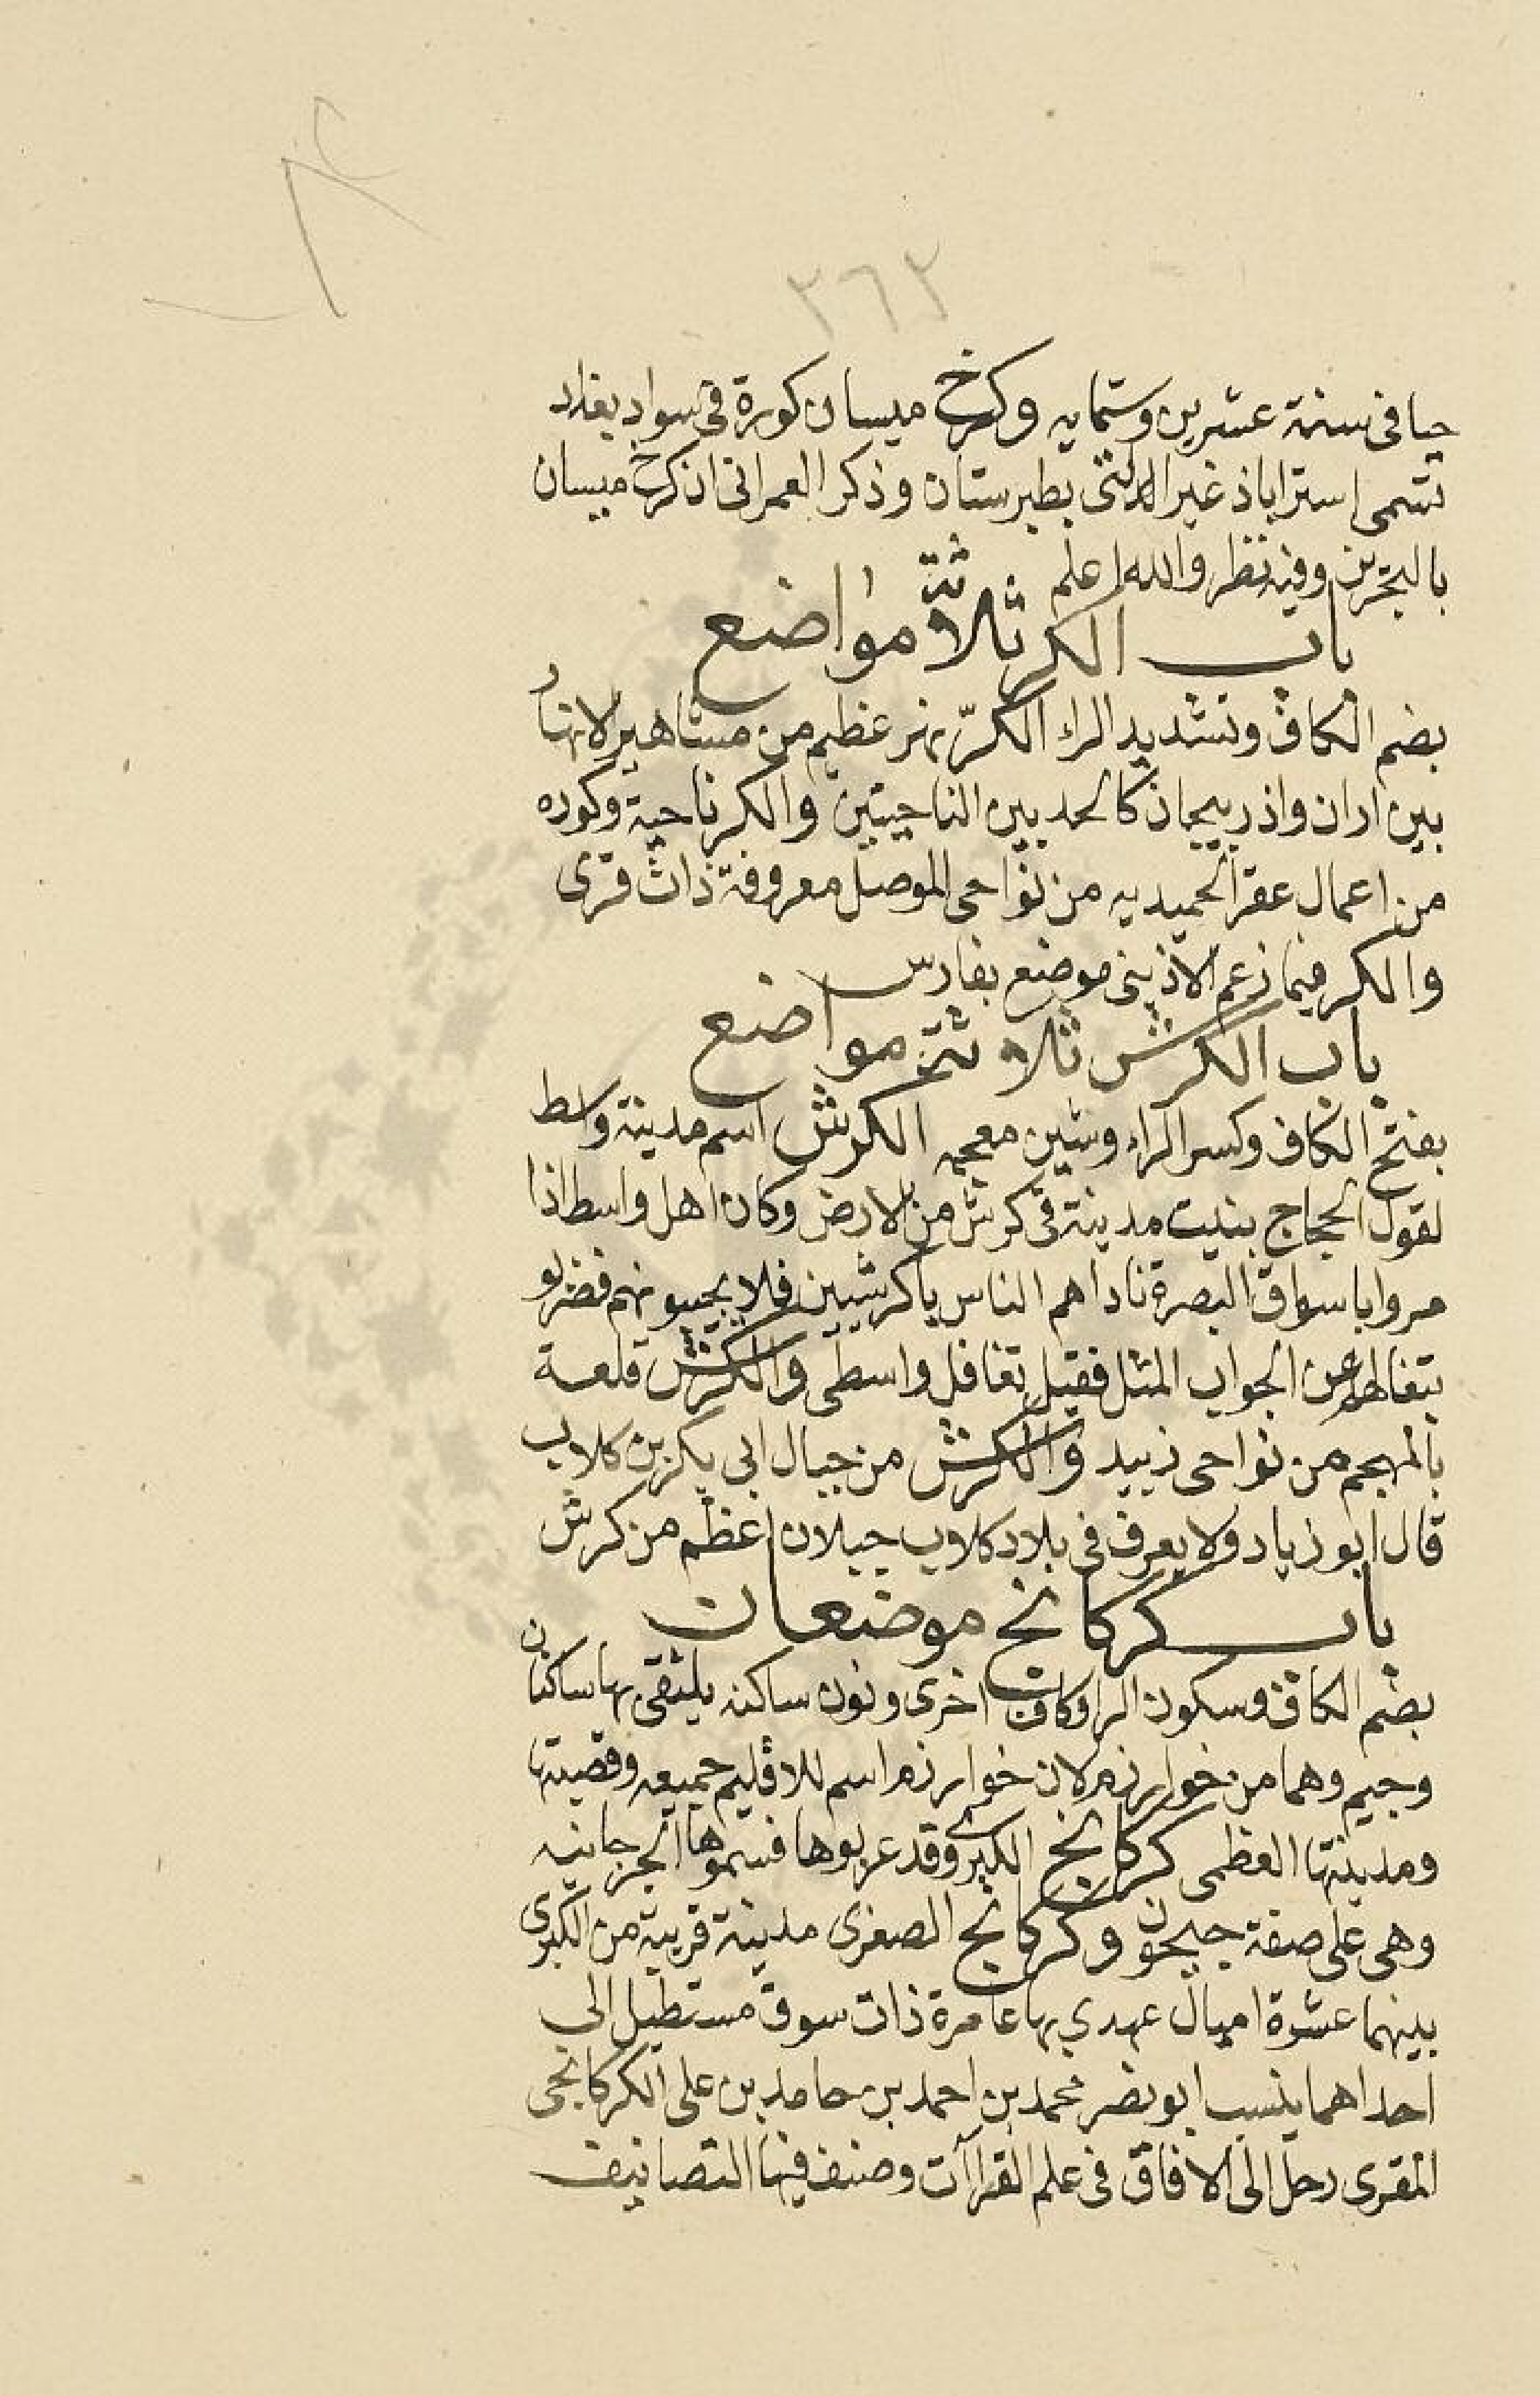 ٣٦٢
حيا فى سنة عشرين وستمايه وكرخ ميسان كورة فى سواد بغداد
تسمى استراباذ غير التى بطبرستان وذكر العمرانى ان كرخ ميسان
بالبحرين وفيه نظر والله اعلم
باب الكر ثلاثة مواضع
بضم الكاف وتشديد الراء الكرّ نهر عظيم من مشاهير الانهار
بين اران واذربيجان كالحد بين الناحيتين والكر ناحية وكوره
من اعمال عقر الحميديه من نواحى الموصل معروفة ذات قرى
والكر فيما زعم الاذيبى موضع بفارس
باب الكرش ثلاثة مواضع
بفتح الكاف وكسر الراء وشين معجمه الكرش اسم مدينة واسط
لقول الحجاج بنيت مدينة فى كرش من الارض وكان اهل واسط اذا
مروا باسواق البصرة ناداهم الناس يا كرشيين فلا يجيبونهم فضربو
بتغافلهم عن الجواب المثل فقيل تغافل واسطى والكرش قلعة
بالمهجم من نواحى زبيد والكرش من جبال ابى بكر بن كلاب
قال ابو زياد ولا يعرف فى بلاد كلاب جبلان اعظم من كرش
باب كركانج موضعان
بضم الكاف وسكون الرا وكاف اخرى ونون ساكنه يلتقى بها ساكنان
وجيم وهما من خوارزم لان خوارزم اسم للاقليم جميعه وقصبتها
ومدينتها العظمى كركانج الكبرى وقد عربوها فسموها الجرجانيه
وهى على ضفة جيحون وكركانج الصغرى مدينة قريبة من الكبرى
بينهما عشرة اميال عهدي بها عامرة ذات سوق مستطيل الى
احداهما ينسب ابو نصر محمد بن احمد بن حامد بن على الكركانجى
المقرى رحل الى الافاق فى علم القراآت وصنف فيها التصانيف